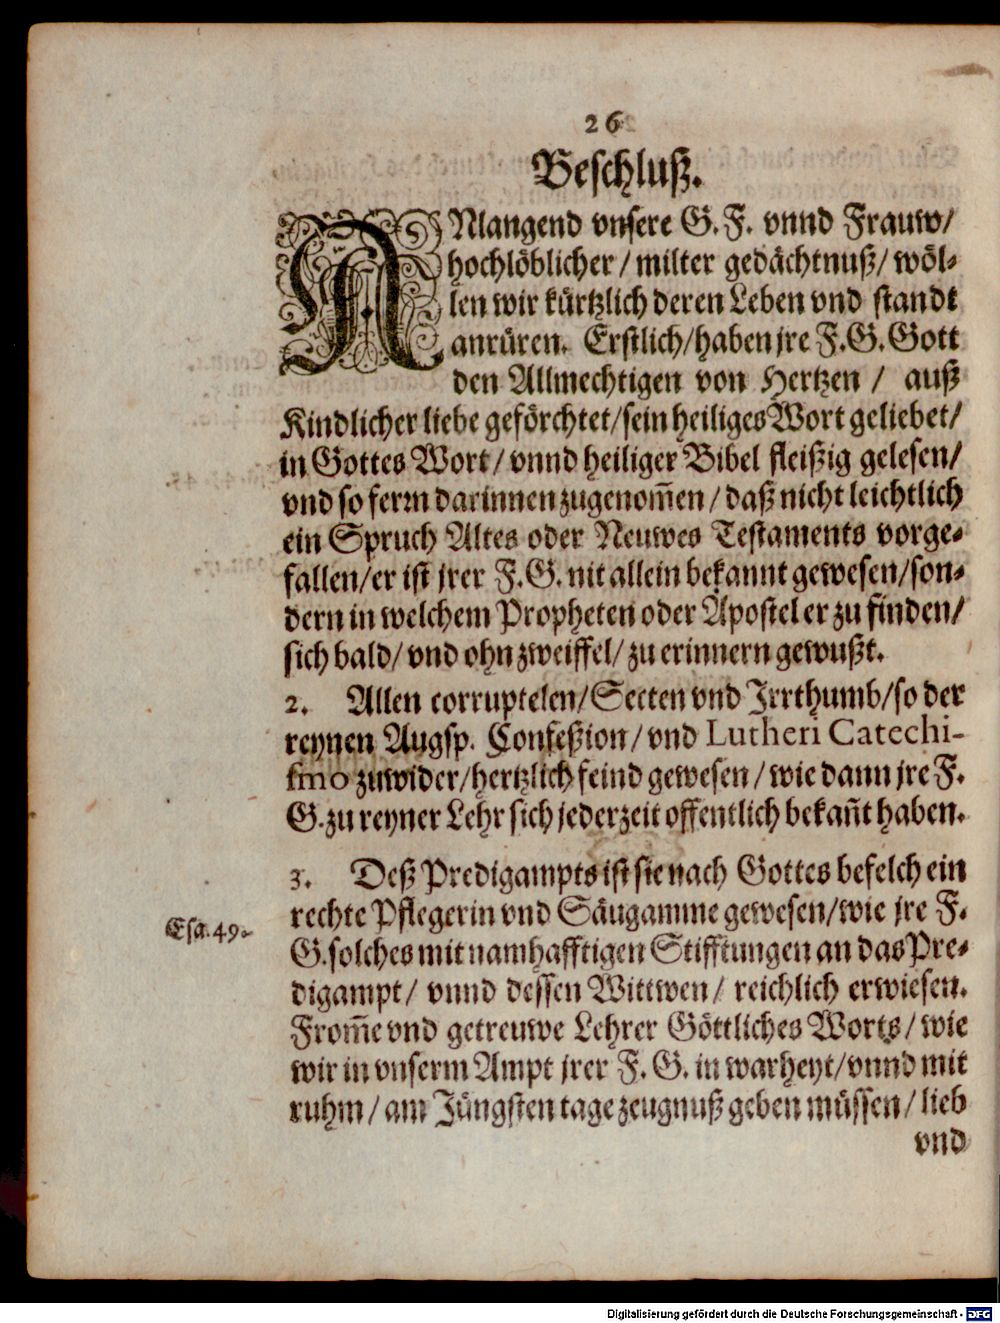 26
Beschluß.
ANlangend vnsere G. F. vnnd Frauw/
hochlöblicher/ milter gedächtnuß/ wöl-
len wir kürtzlich deren Leben vnd standt
anrüren. Erstlich/ haben jre F. G. Gott
den Allmechtigen von Hertzen / auß
Kindlicher liebe geförchtet/ sein heiliges Wort geliebet/
in Gottes Wort/ vnnd heiliger Bibel fleißig gelesen/
vnd so ferrn darinnen zugenom̄en/ daß nicht leichtlich
ein Spruch Altes oder Neuwes Testaments vorge-
fallen/ er ist jrer F. G. nit allein bekannt gewesen/ son-
dern in welchem Propheten oder Apostel er zu finden/
sich bald/ vnd ohn zweiffel/ zu erinnern gewußt.
2. Allen corruptelen/ Secten vnd Irrthumb/ so der
reynen Augsp. Confeßion/ vnd Lutheri Catechi-
smo zuwider/ hertzlich feind gewesen/ wie dann jre F.
G. zu reyner Lehr sich jederzeit offentlich bekan̄t haben.
3. Deß Predigampts ist sie nach Gottes befelch ein
rechte Pflegerin vnd Säugamme gewesen/ wie jre F.
Esa. 49.
G. solches mit namhafftigen Stifftungen an das Pre-
digampt/ vnnd dessen Wittwen/ reichlich erwiesen.
From̄e vnd getreuwe Lehrer Göttliches Worts/ wie
wir in vnserm Ampt jrer F. G. in warheyt/ vnnd mit
ruhm/ am Jüngsten tage zeugnuß geben müssen/ lieb
vnd
Digitalisierung gefördert durch die Deutsche Forschungsgemeinschaft - DFG